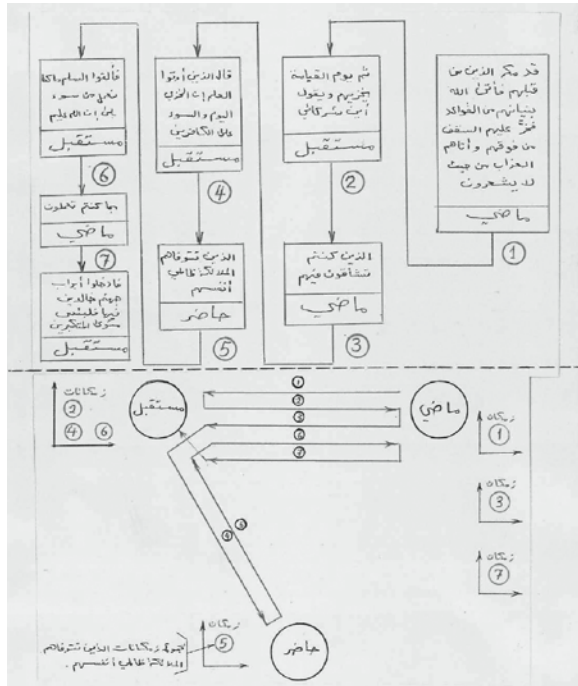 قد مكر الذين من
قبلهم فأتى الله
بنيانهم من القواعد
فخرّ عليهم السقف
من فوقهم وأتاهم
العذاب من حيث
لا يشعرون
ماضي
1
ثم يوم القيامة
يخزيهم ويقول
أين شركائي
مستقبل
2
الذين كنتم
تشاقون فيهم
ماضي
3
قال الذين أوتوا
العلم إن الخزي
اليوم والسوء
على الكافرين
مستقبل
4
الذين تتوفاهم
الملائكة ظالمي
أنفسهم
حاضر
5
فألقوا السلم ما كنا
نعمل من سوء
بلى إن الله عليم
مستقبل
6
بما كنتم تعملون
ماضي
7
فادخلوا أبواب
جهنم خالدين
فيها فلبئس
مثوى المتكبرين
مستقبل
ماضي
مستقبل
زمكانات
2
4 6
1
2
3
6
7
زمكان
1
زمكان
3
زمكان
7
حاضر
زمكان
5
زمكانات الذين تتوفاهم
الملائكة ظالمي أنفسهم.